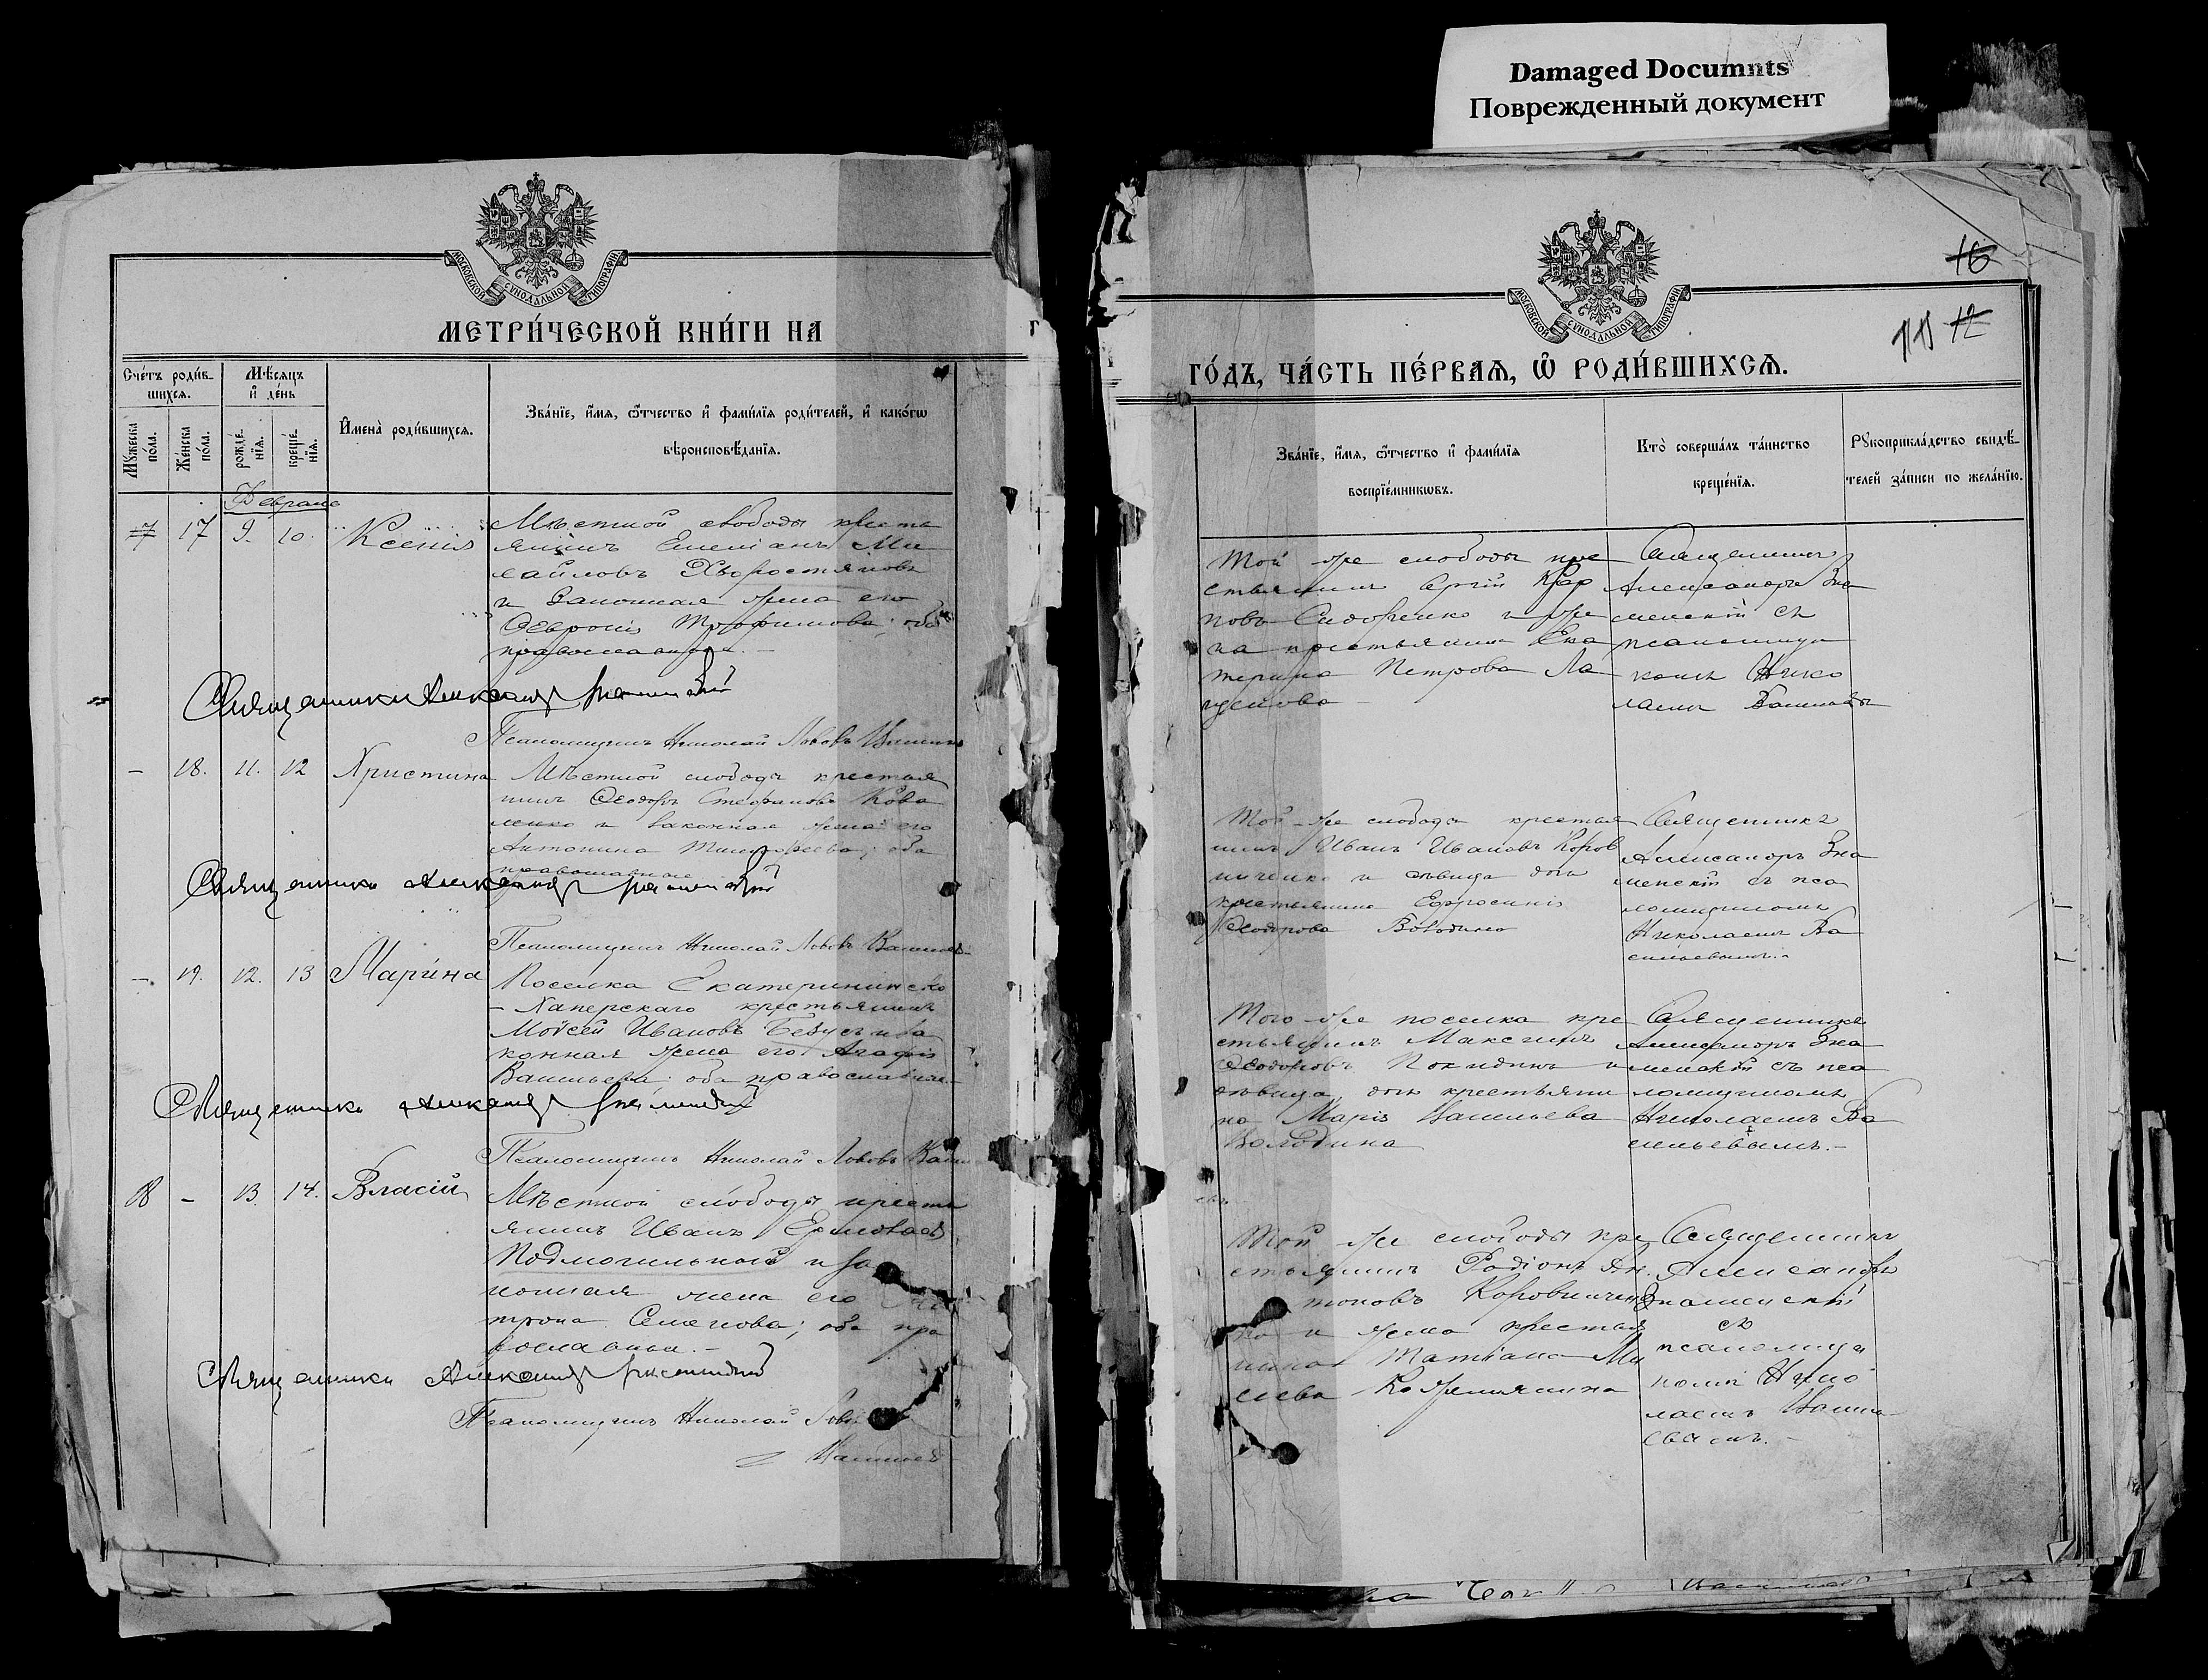 Damaged Documnts
Поврежденный документ
МОСКОВСКОЙ СѴНОДАЛЬНОЙ ТИПОГРАФІИ
МЕТРИ́ЧЕСКОЙ КНИ́ГИ НА
Сче́тъ роди́в-
шихся.
Мѣ́сяцъ
и҆ де́нь
Мꙋ́жеска
по́ла.
Же́нска
по́ла.
рожде́-
нїя.
креще́-
нїя.
И҆мена̀ роди́вшихся.
Зва́нїе, и҆́мя, ѻ҆́тчество и҆ фами́лїя роди́телей, и҆ како́гѡ
вѣроисповѣ́данїя.
Февраль
17 17 9. 10. Ксенія
Мѣстной слободы кресть
янинъ Емеліанъ Ми
хайловъ Хворостяновъ
и законная жена его
Ѳевронія Трофимова; оба
православные. –
Священникъ Александръ Знаменскій
Псаломщикъ Николай Львовъ
– 18. 11. 12 Христина
Мѣстной слободы крестья
нинъ Ѳеодоръ Стефановъ Кова
ленко и законная жена его
Антонина Тимоѳеева; оба
православные
Священникъ Александръ Знаменскій
Псаломщикъ Николай Львовъ Васильевъ
– 19. 12. 13 Марина
Поселка Екатерининско
– Хаперскаго крестьянинъ
Моѵсей Ивановъ и за
конная жена его Агафія
Васильева; оба православные –
Священникъ Александръ Знаменскій
Псаломщикъ Николай Львовъ Васи
18 – 13. 14. Власій
Мѣстной слободы кресть
янинъ Иванъ
Подмогильный и за
конная жена его Ма
трона Семенова; оба пра
вославные. –
Священникъ Александръ Знаменскій
Псаломщикъ Николай Львовъ
Васильев
16
МОСКОВСКОЙ СѴНОДАЛЬНОЙ ТИПОГРАФІИ
12
Г
ГО́ДЪ, ЧА́СТЬ ПЕ́РВАЯ, Ѽ РОДИ́ВШИХСЯ.
Зва́нїе, и҆́мя, ѻ҆́тчество и҆ фами́лїя
воспрїе́мникѡвъ.
Кто̀ соверша́лъ та́инство
креще́нїя.
Рꙋкоприкла́дство свидѣ́-
телей за́писи по жела́нїю.
Той же слободы кре
стьянинъ Сергій Кар
повъ Сидоренко и же
на крестьянина Ека
терина Петрова Ла
гунова –
Священникъ
Александръ Зна
менскій съ
псаломщи
комъ Нико
лаемъ Васильевы
Той же слободы крестья
нинъ Иванъ Ивановъ Коров
ниченко и дѣвица дочь
крестьянина Евфросинія
Ѳеодорова
Священникъ
Александръ Зна
менскій съ пса
ломщикомъ
Николаемъ Ва
сильевымъ. –
Того же поселка кре
стьянинъ Максимъ
Ѳеодоровъ и
дѣвица, дочь крестьяни
на Марія Васильева
Володина
Священникъ
Александръ Зна
менскій съ пса
ломщикомъ
Николаемъ Ва
сильевымъ. –
Той же слободы кре
стьянинъ Родіонъ Ан.
тоновъ Коровничен
ко и жена крестья
нина Татіана Ми
сева Кожемякина
Священникъ
Александръ
Знаменскій
съ
псаломщи
комъ Нико
лаемъ Василь
евымъ. –